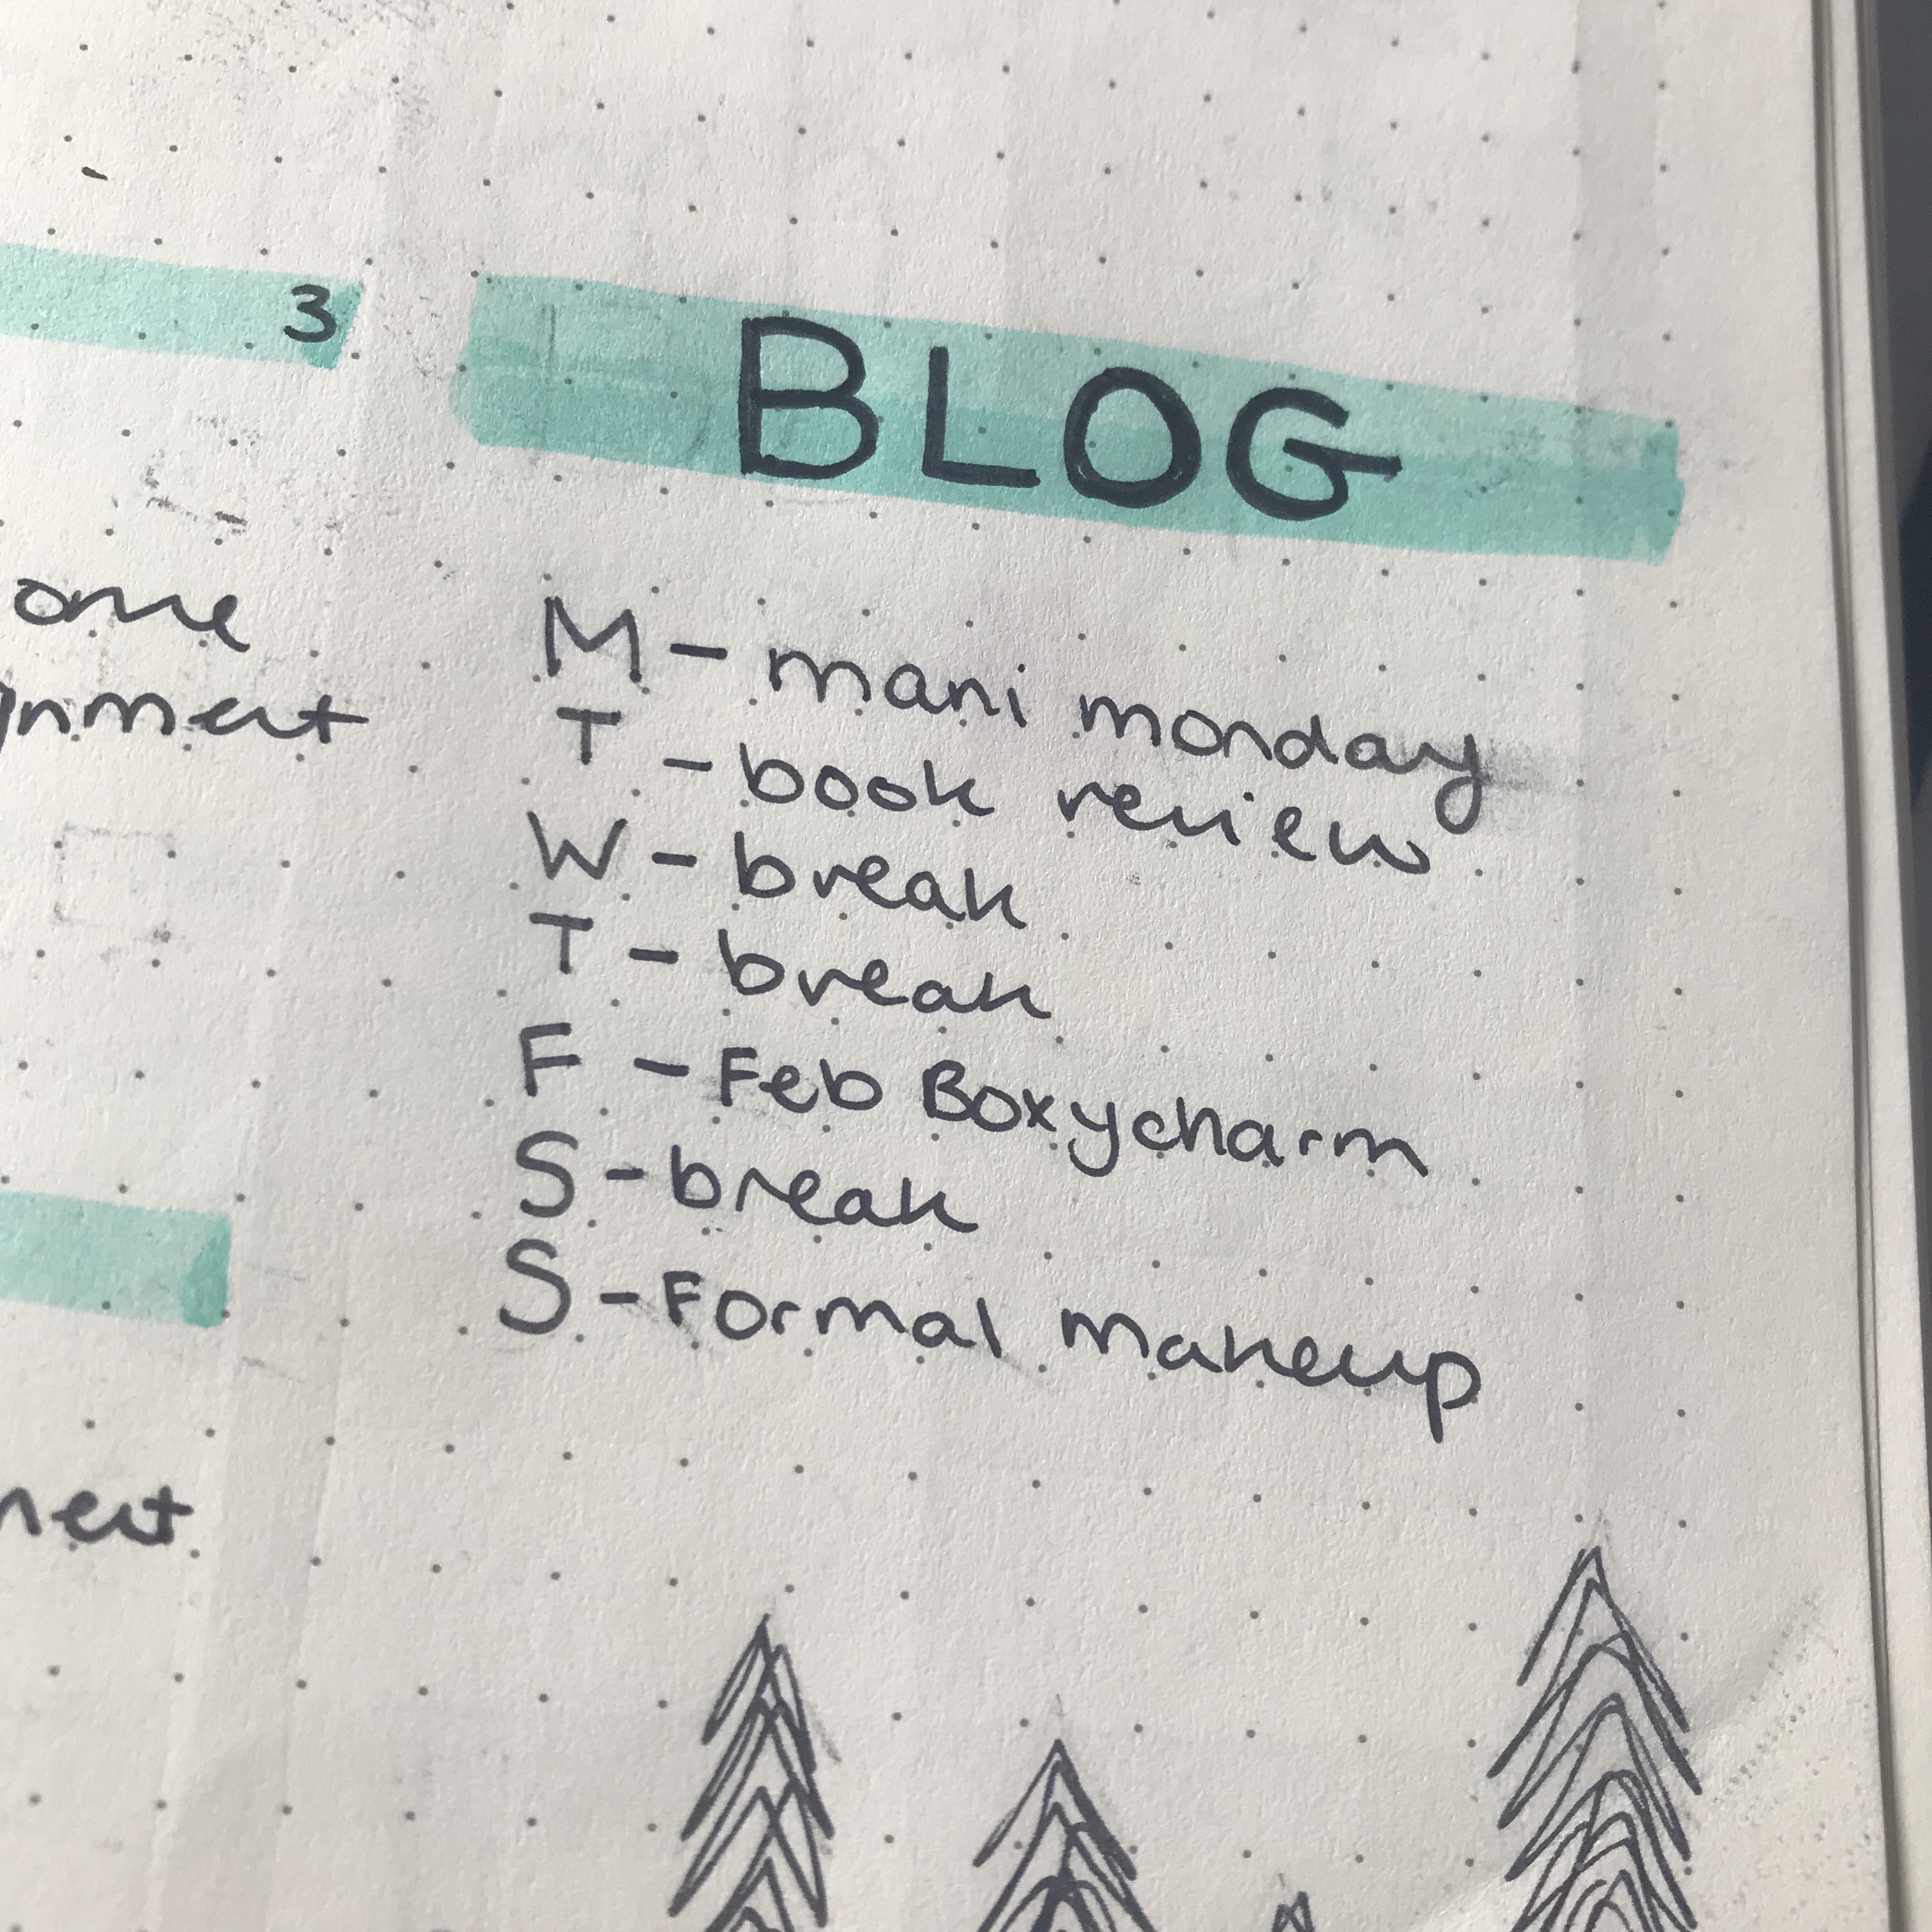 3
BLOG
ome
M - mani monday
nment
T - book review
W - break
T - break
F - Feb Boxycharm
S - break
S - Formal makeup